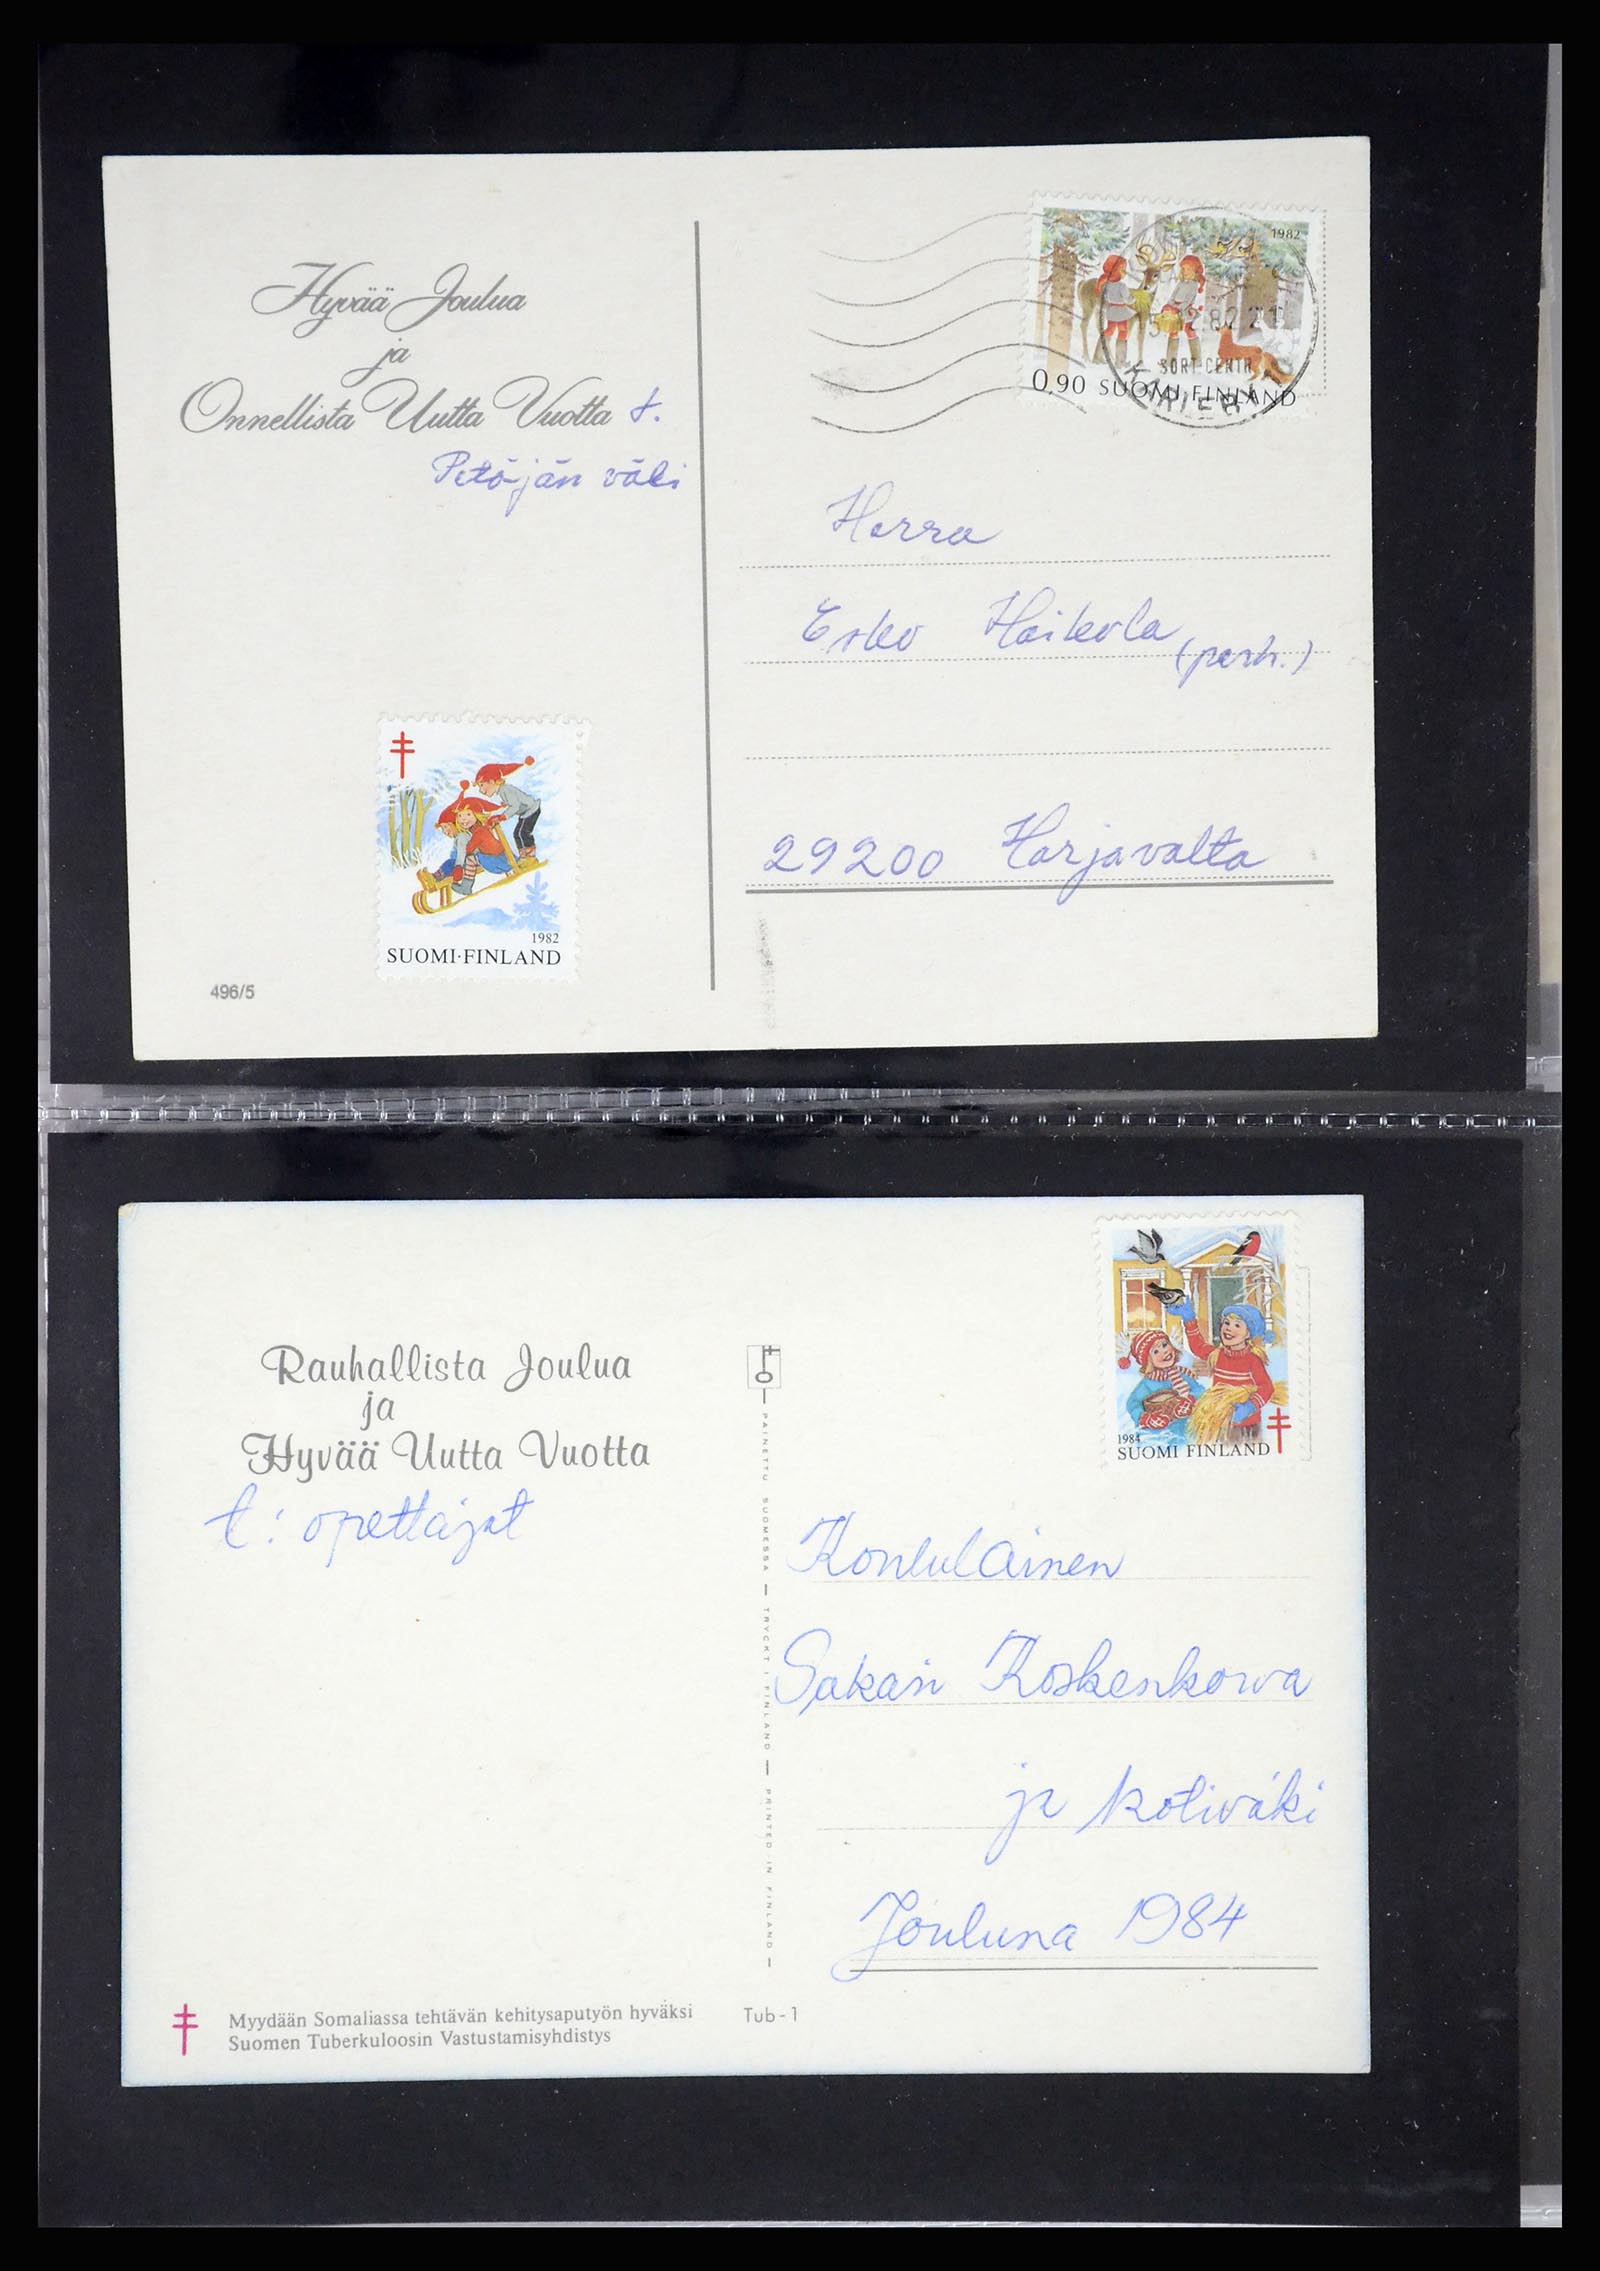 Hyvää Joulua
ja
Onnellista Uutta Vuotta t.
Petäjän väki
1982
5.12.82 21
SORT-CENTR
0,90 SUOMI FINLAND
Herra
Esko Haikola
(perh.)
29200 Harjavalta
1982
SUOMI·FINLAND
496/5
Rauhallista Joulua
ja
Hyvää Uutta Vuotta
t: opettajat
1984
SUOMI FINLAND
PAINETTU SUOMESSA — TRYCKT I FINLAND — PRINTED IN FINLAND —
Koululainen
Sakari Koskenkorva
ja kotiväki
Jouluna 1984
Myydään Somaliassa tehtävän kehitysaputyön hyväksi
Suomen Tuberkuloosin Vastustamisyhdistys
Tub-1